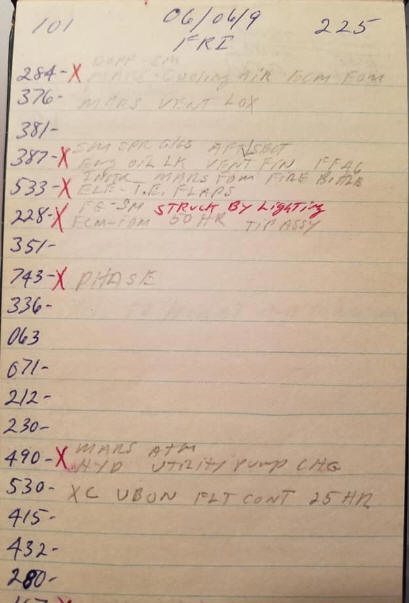 101 06/06/9 225
FRI
DOPP SM
284-X MARS Cooling AIR ECM FOM
376- MARS VENT LOX
381-
SM SPR
387-X Eng OIL LK VENT FIN
MARS FOM FIRE
533-X ELE-T.E. FLAPS
FE-SM STRUCK BY Lighting
228-X ECM-FOM 50 HR TIP ASSY
351-
743-X PHASE
336-
063
671-
212-
230-
MARS ATM
490-X HYD UTILITY Pump CHG
530- XC UBON FLT CONT 25 HR
415-
432-
280-